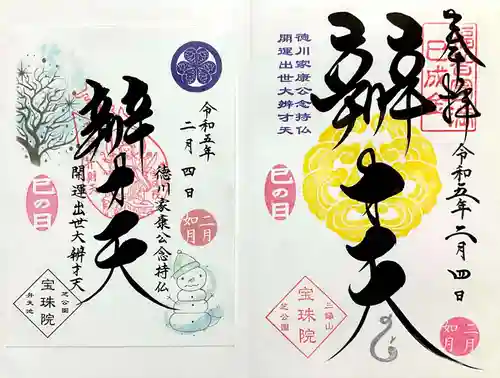 奉拝
辨才天
徳川家康公念持仏
開運出世大辨才天
令和五年二月四日
巳の日
二月
如月
三縁山
宝珠院
芝公園
令和五年
二月四日
辨才天
徳川家康公念持仏
開運出世大辨才天
巳の日
二月
如月
芝公園
宝珠院
弁天池